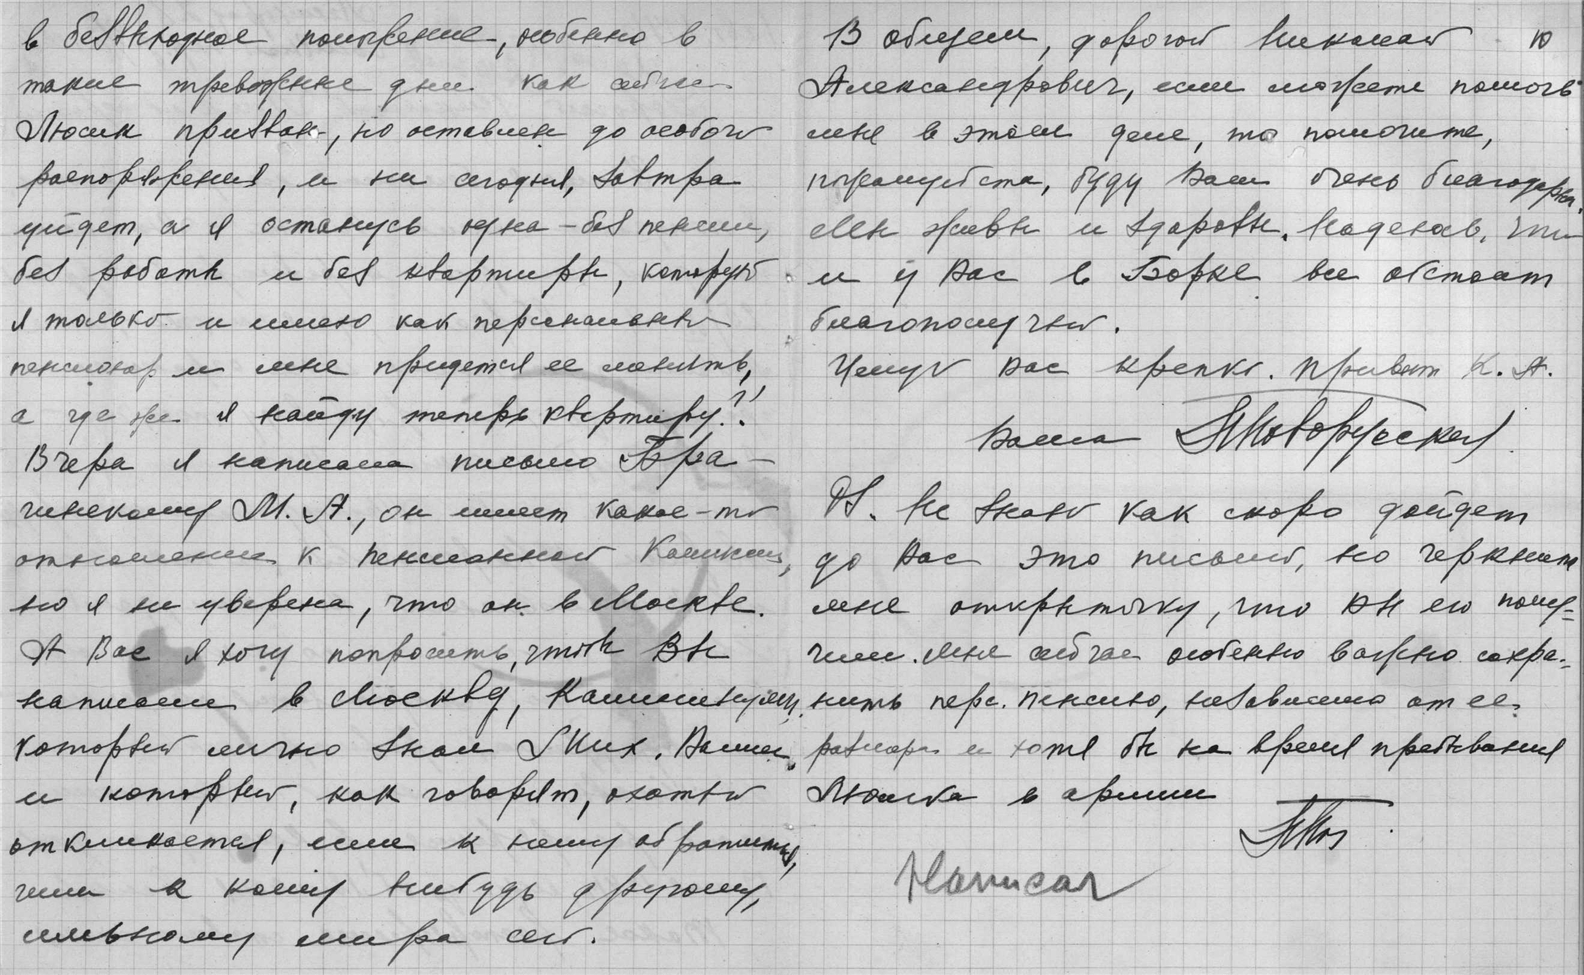 в безвыходное положение, особенно в
такие тревожные дни как сейчас
Люсик призван, но оставлен до особого
распоряжения, и не сегодня, завтра
уйдет, а я останусь одна – без пенсии,
без работы и без квартиры, которую
я только и имею как персональный
пенсионер и мне придется ее менять,
а где же я найду теперь квартиру?!
Вчера я написала письмо Бра-
гинскому М. А., он имеет какое-то
отношение к пенсионной Комиссии,
но я не уверена, что он в Москве.
А Вас я хочу попросить, чтобы Вы
написали в Москву, Калинину,
который лично знал Вашим,
и который, как говорят, охотно
откликается, если к нему обратиться,
чем к кому нибудь другому,
сильному мира сего.
10
В общем, дорогой Николай
Александрович, если можете помочь
мне в этом деле, то помогите,
пожалуйста, буду Вам очень благодарна.
Мы живы и здоровы. Надеюсь, что
и у Вас в Борке все обстоит
благополучно.
Целую Вас крепко. Привет К. А.
Ваша Новорусская.
PS. Не знаю как скоро дойдет
до Вас это письмо, но черкните
мне открыточку, что Вы его полу=
чили. Мне сейчас особенно важно сохра=
нить перс. пенсию, независимо от ее
размера и хотя бы на время пребывания
Люсика в армии
Написал